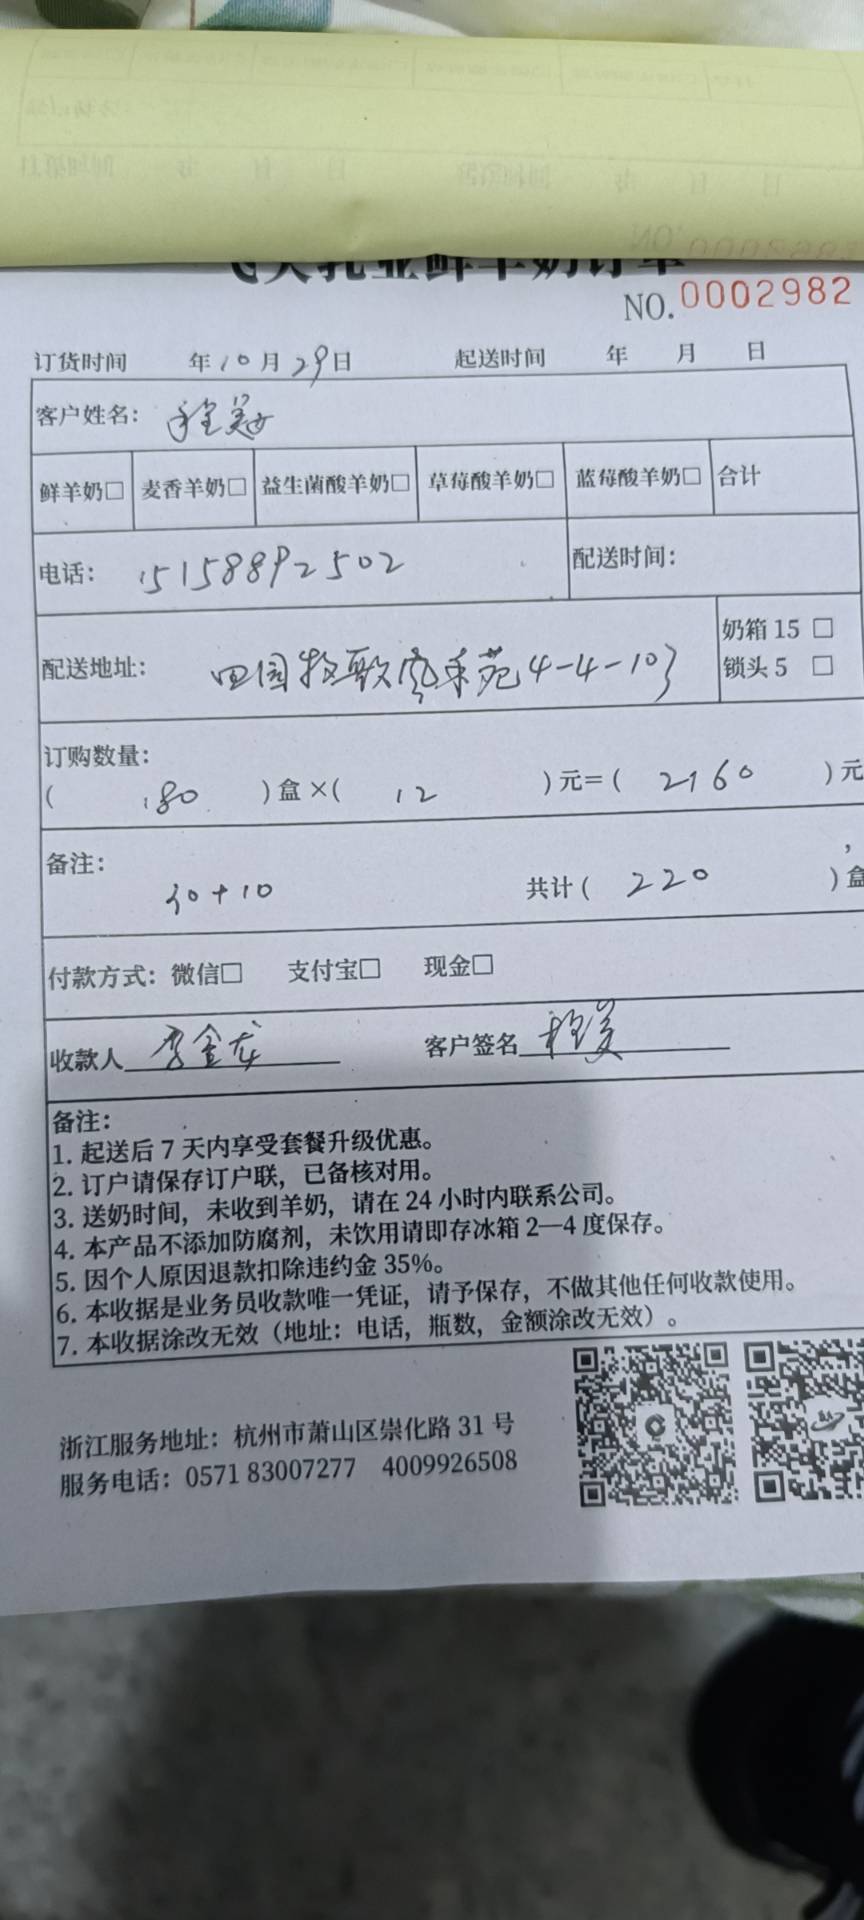 NO.0002982
订货时间 年10月29日 起送时间 年 月 日
客户姓名：程美
鲜羊奶□ 麦香羊奶□ 益生菌酸羊奶□ 草莓酸羊奶□ 蓝莓酸羊奶□ 合计
电话：15158892502 配送时间：
奶箱 15 □
配送地址：田园牧歌 采苑4-4-103 锁头 5 □
订购数量：
( 180 )盒×( 12 )元=( 2160 )元
备注：
30+10 共计( 220 )盒
付款方式：微信□ 支付宝□ 现金□
收款人 李金龙 客户签名 程美
备注：
1. 起送后 7 天内享受套餐升级优惠。
2. 订户请保存订户联，已备核对用。
3. 送奶时间，未收到羊奶，请在 24 小时内联系公司。
4. 本产品不添加防腐剂，未饮用请即存冰箱 2—4 度保存。
5. 因个人原因退款扣除违约金 35%。
6. 本收据是业务员收款唯一凭证，请予保存，不做其他任何收款使用。
7. 本收据涂改无效（地址：电话，瓶数，金额涂改无效）。
浙江服务地址：杭州市萧山区崇化路 31 号
服务电话：0571 83007277 4009926508